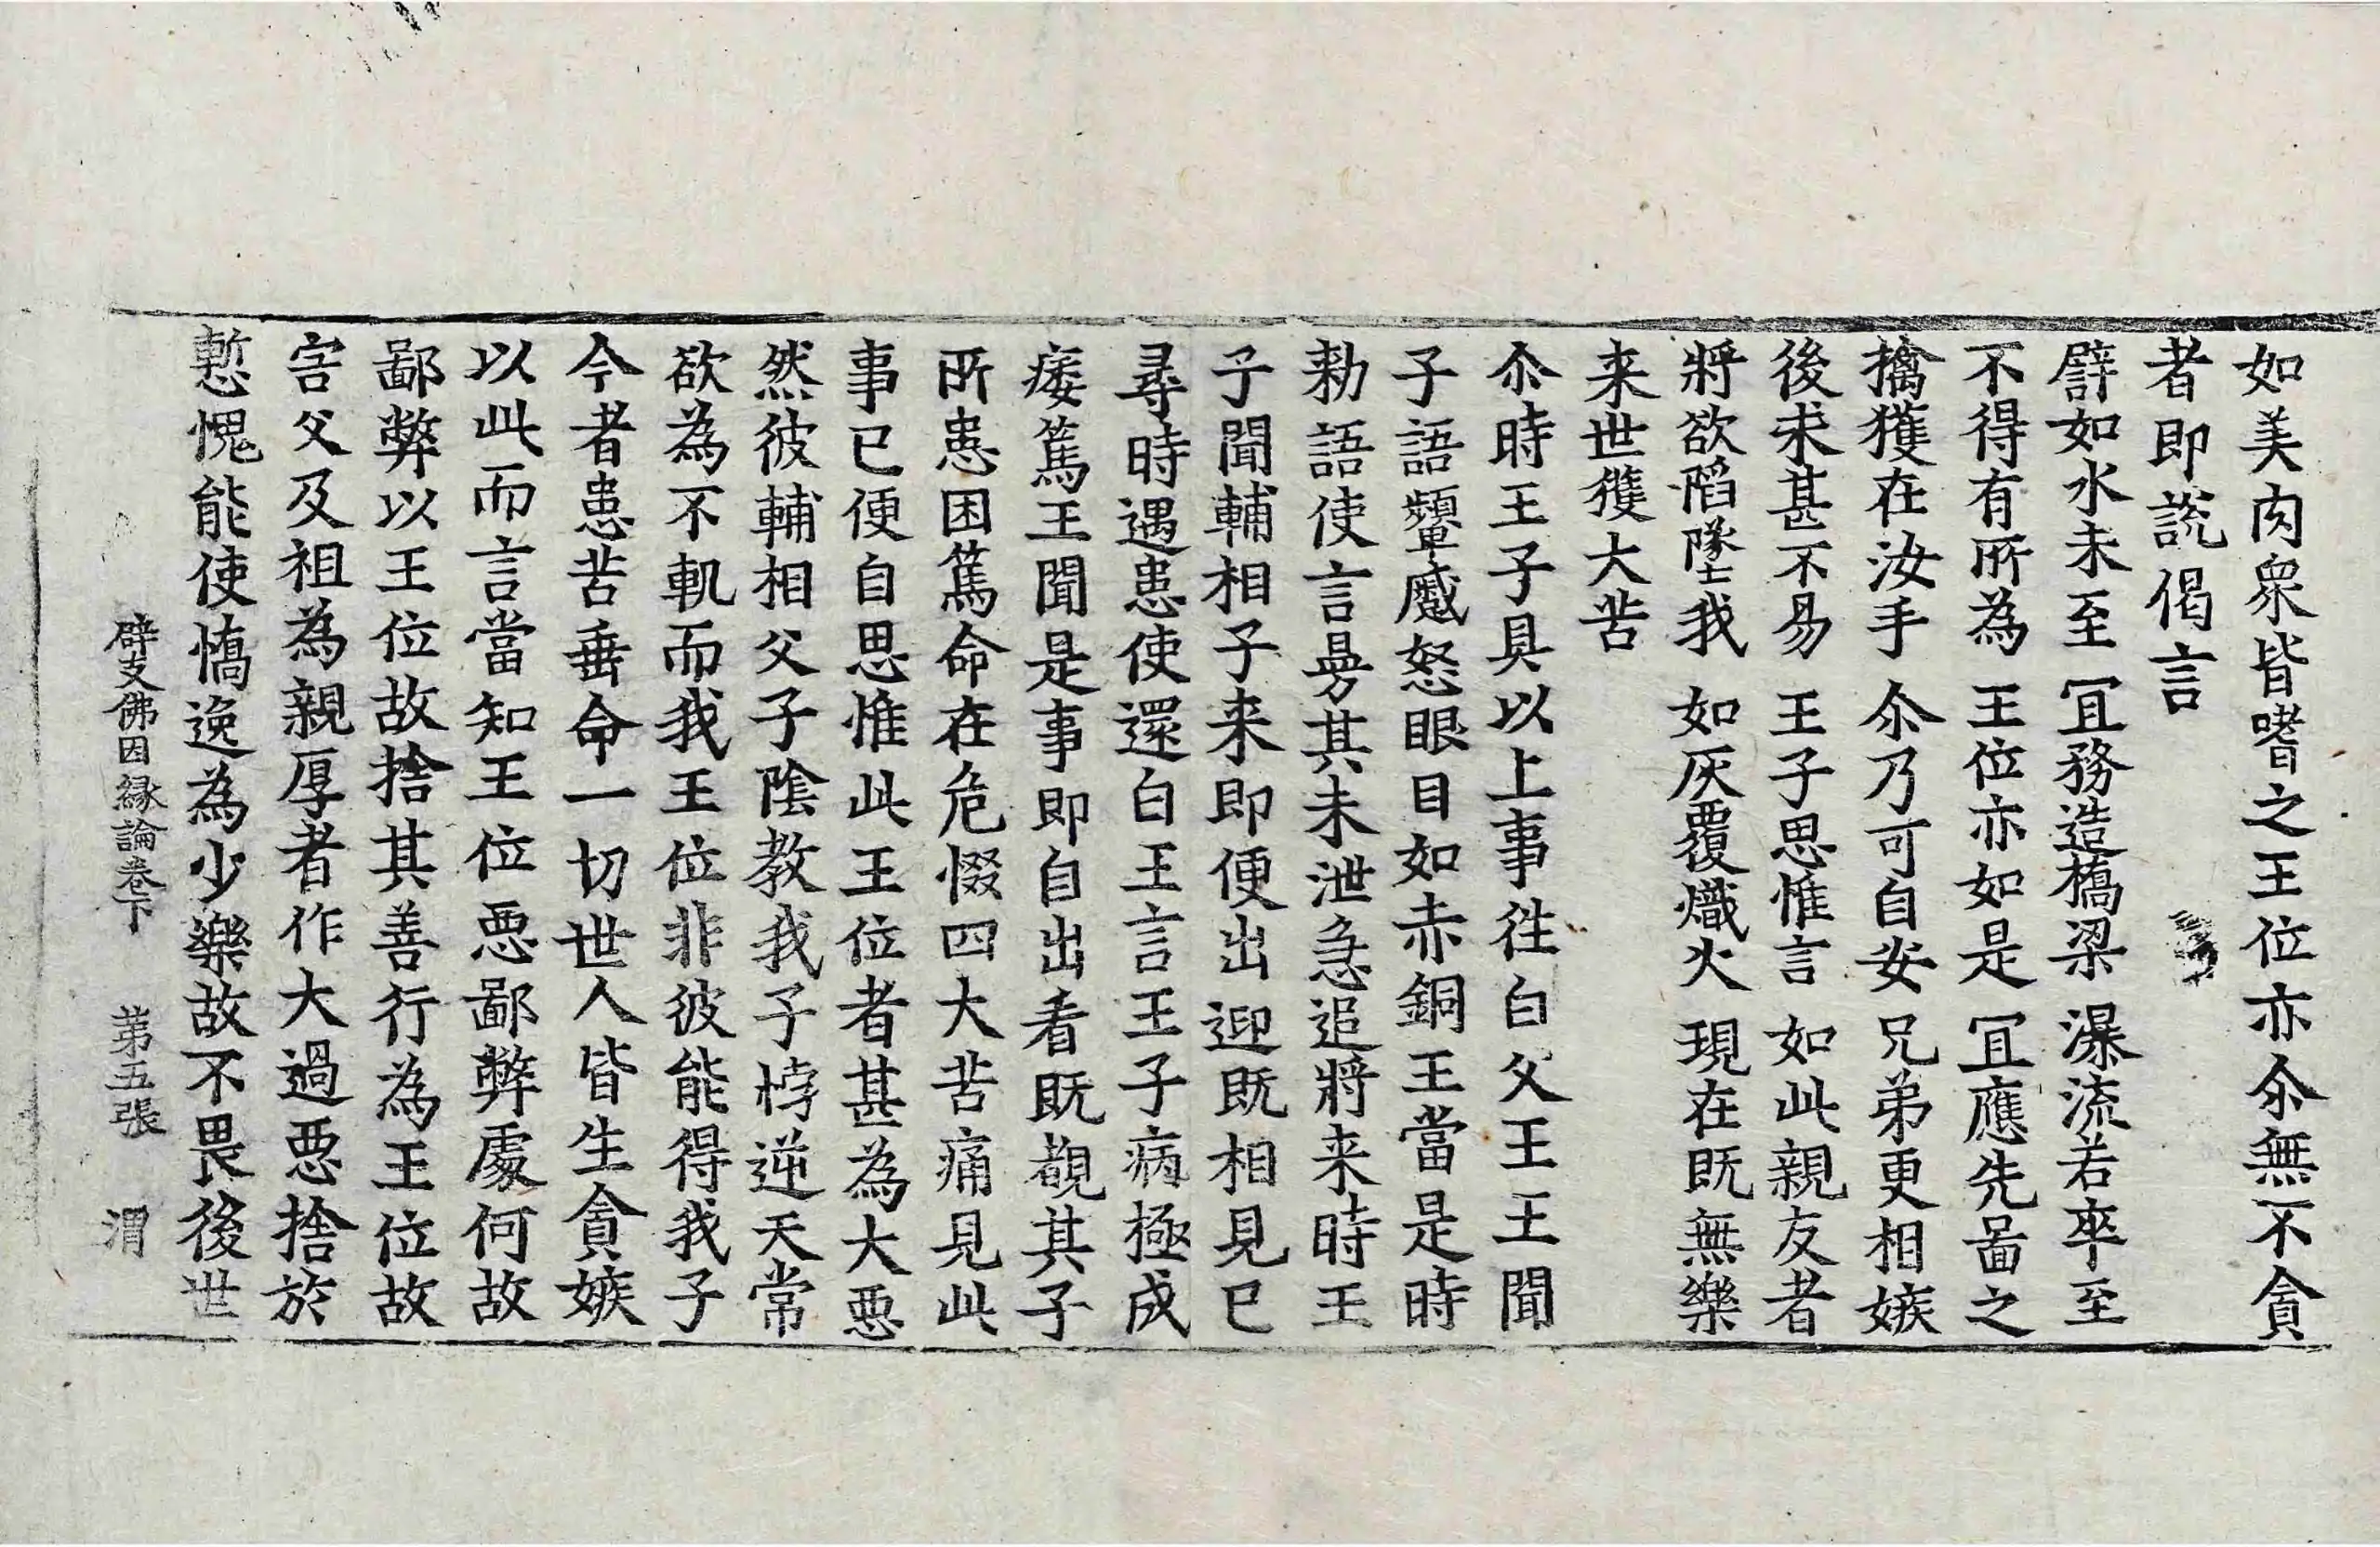 如美肉衆皆嗜之王位亦尒無不貪
者即說偈言
譬如水未至 冝務造橋梁 瀑流若卒至
不得有所為 王位亦如是 冝應先啚之
擒獲在汝手 尒乃可自安 兄弟更相嫉
後求甚不易 王子思惟言 如此親友者
將欲陷墜我 如灰覆熾火 現在既無樂
来世獲大苦
尒時王子具以上事往白父王王聞
子語顰蹙怒眼目如赤銅王當是時
勑語使言曼其未泄急追將来時王
子聞輔相子来即便出迎既相見已
尋時遇患使還白王言王子病極成
痿篤王聞是事即自出看既覩其子
所患困篤命在危惙四大苦痛見此
事已便自思惟此王位者甚為大惡
然彼輔相父子陰教我子悖逆天常
欲為不軌而我王位非彼能得我子
今者患苦垂命一切世人皆生貪嫉
以此而言當知王位惡鄙弊處何故
鄙弊以王位故捨其善行為王位故
害父及祖為親厚者作大過惡捨於
慙愧能使憍逸為少樂故不畏後世
辟支佛因縁論卷下 第五張 渭